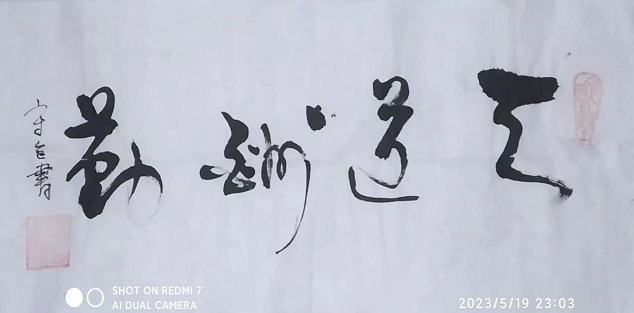 天道酬勤
書
SHOT ON REDMI 7
AI DUAL CAMERA
2023/5/19 23:03